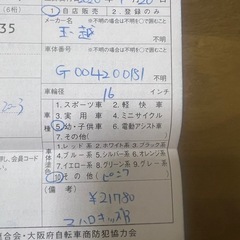 35
①自店販売 2.登録のみ
メーカー名 ※不明の場合は不明を○で囲むこと
玉越
不明
車体番号 ※不明の場合は不明を○で囲むこと
G004200181
不明
車輪径
16 インチ
車種
1.スポーツ車 2.軽快車
3.実用車 4.ミニサイクル
⑤幼・子供車 6.電動アシスト車
7.その他(
1.レッド系 2.ホワイト系 3.ブラック系
4.ブルー系 5.シルバー系 6.オレンジ系
7.イエロー系 8.グリーン系 9.グレー系
⑩その他( ピンク
(備考)
¥21780
連合会・大阪府自転車商防犯協力会